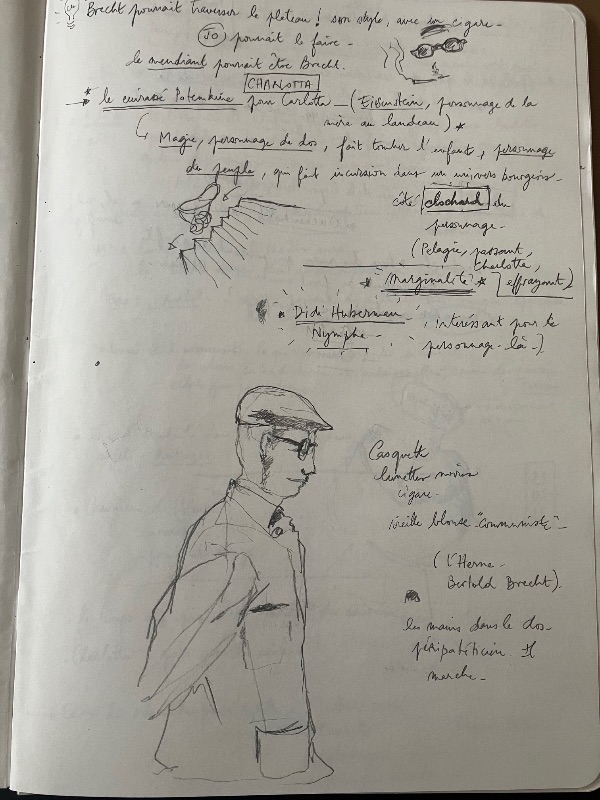 Brecht pourrait traverser le plateau ! son style, avec un cigare -
JO pourrait le faire -
le mendiant pourrait être Brecht.
CHARLOTTA
* le cuirassé Potemkine pour Carlotta - (Eisenstein, personnage de la
mère au landau) *
Magie, personnage de dos, fait tomber l'enfant, personnage
du peuple, qui fait incursion dans un univers bourgeois -
côté clochard du
personnage -
(Pélagie, passant,
Charlotta,
* marginalité * effrayant)
* Didi Huberman -
Nymphe -
, intéressant pour ce
personnage-là -)
Casquette
lunettes noires
cigare -
vieille blouse "communiste" -
(l'Herne -
Bertold Brecht).
les mains dans le dos -
péripatéticien. Il
marche -